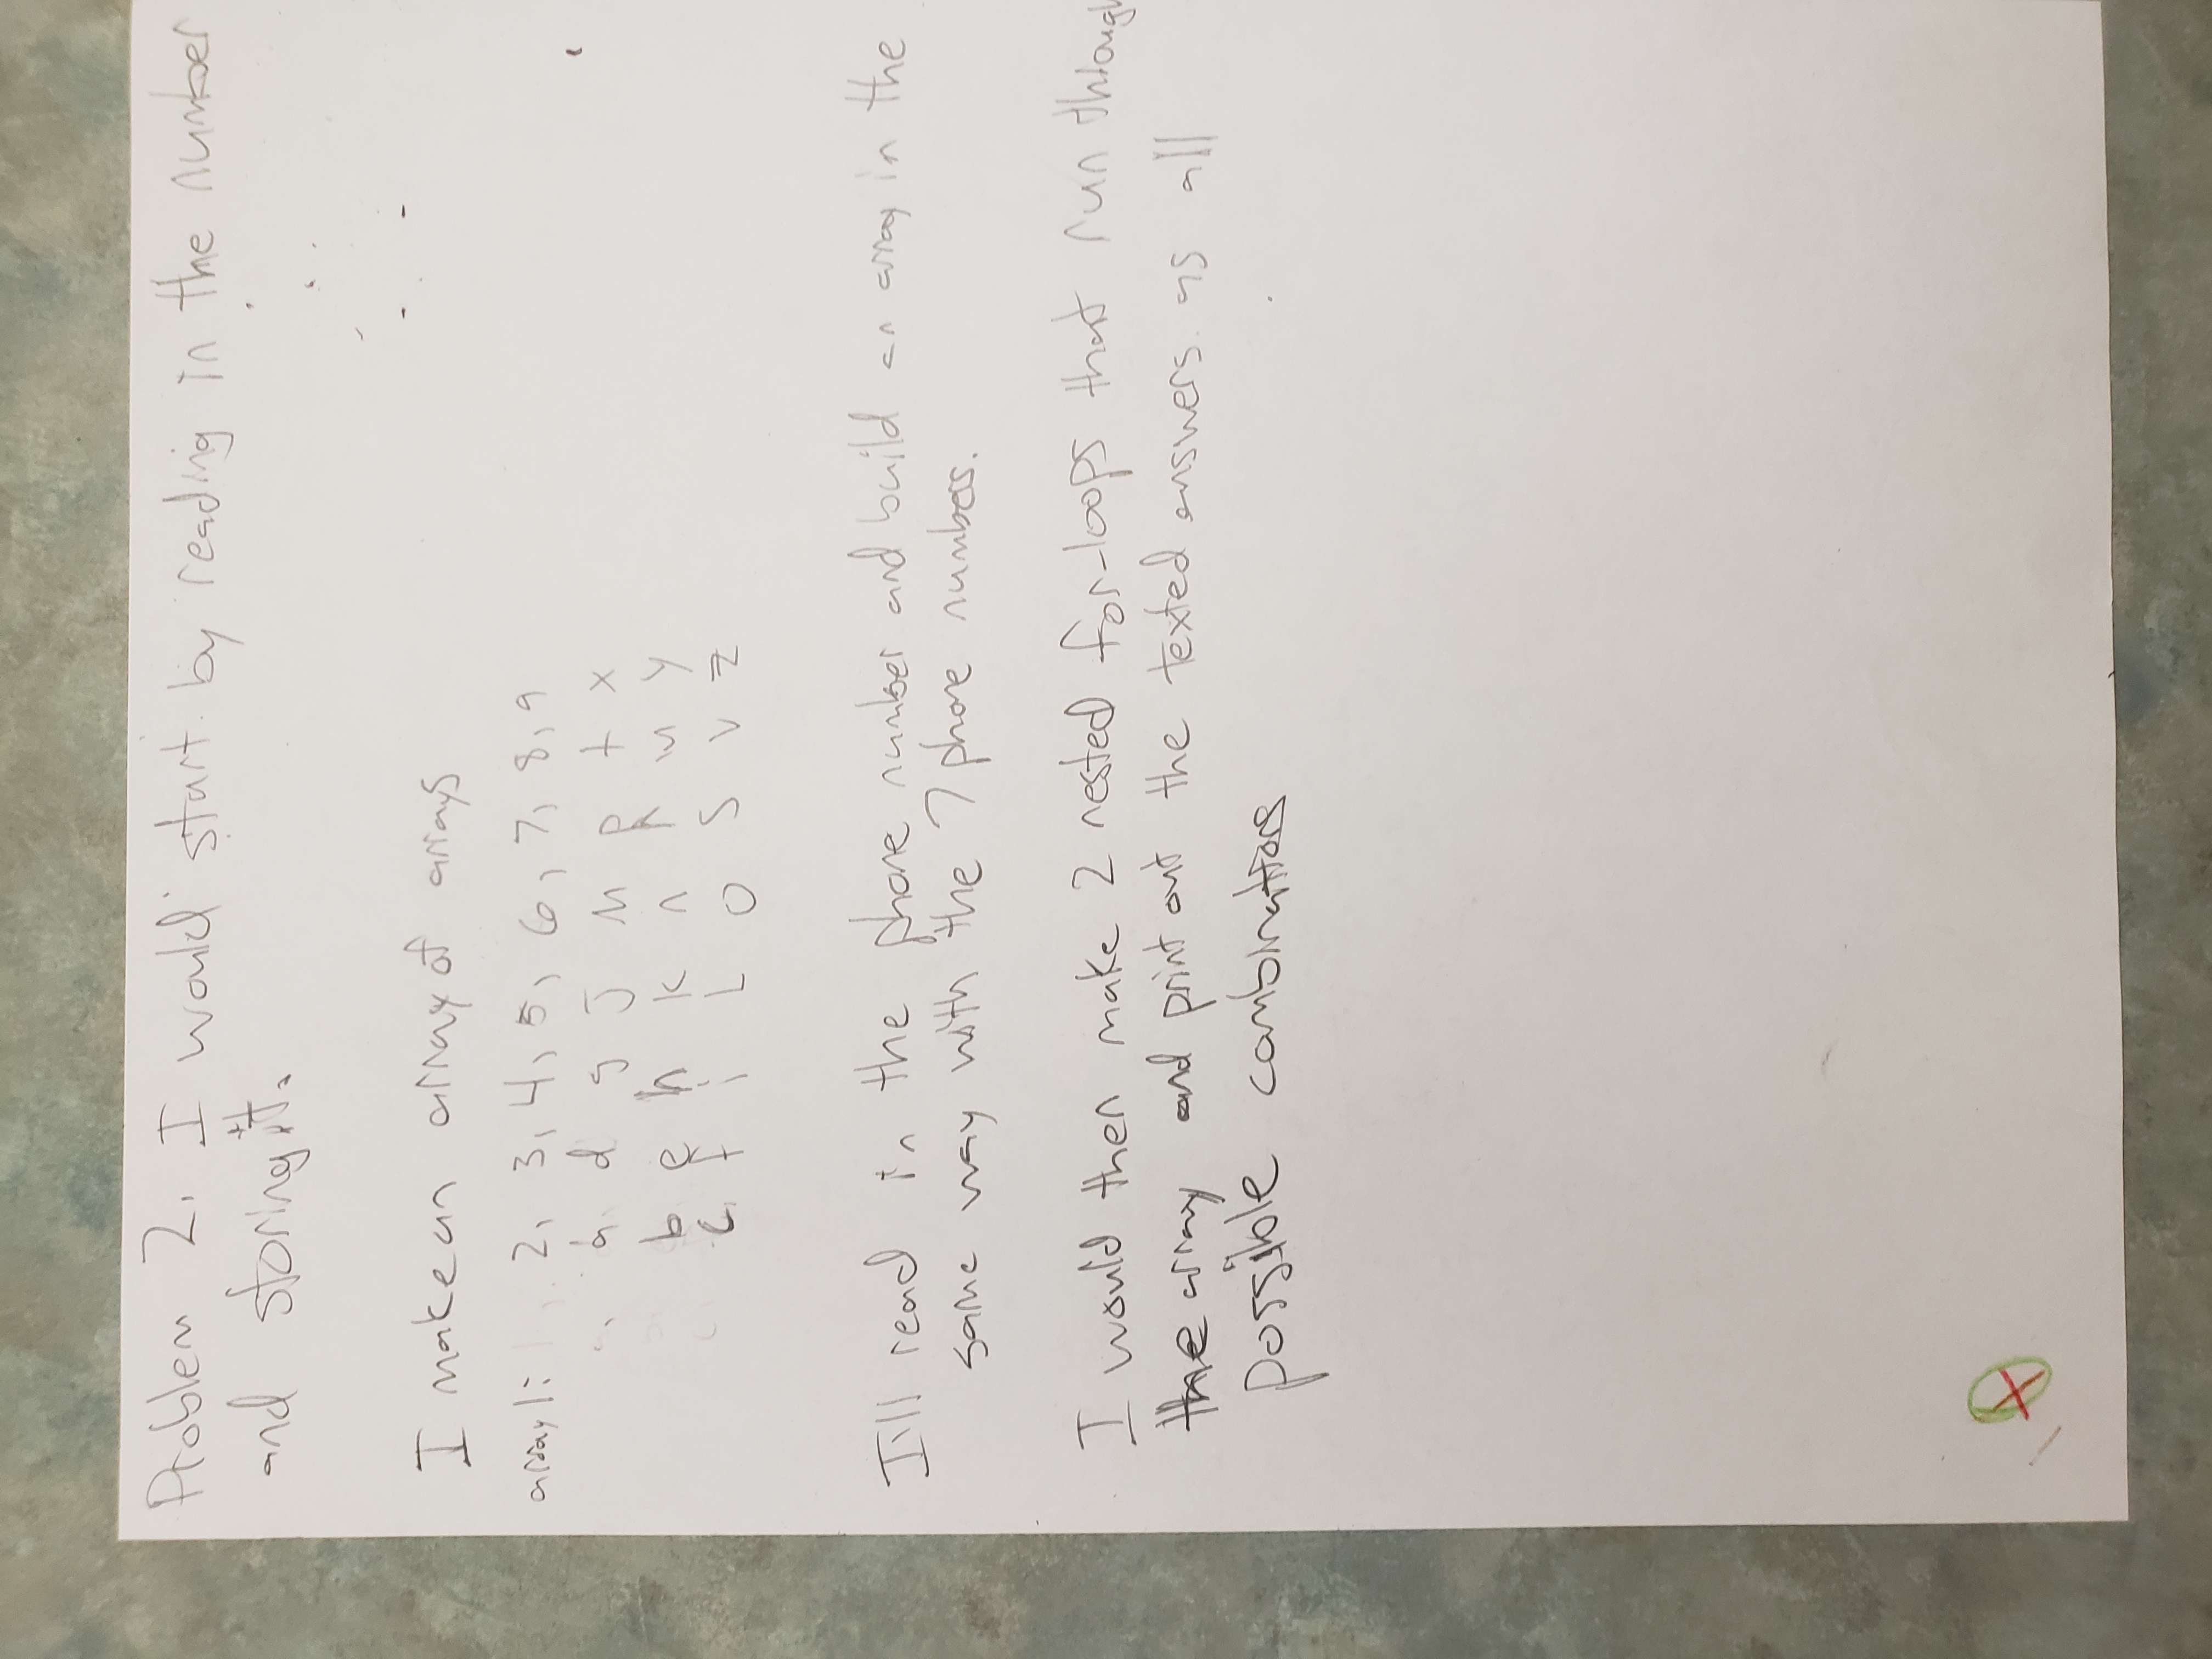 Problem 2. I would start by reading in the number
and storing it.
I make an array of arrays
array1: 2, 3, 4, 5, 6, 7, 8, 9
a d g j m p t x
b e h k n r u y
c f i L o S v z
I'll read in the phone number and build an array in the
same way with the 7 phone numbers.
I would then make 2 nested for-loops that run through
the array and print out the texted answers as all
possible combinations